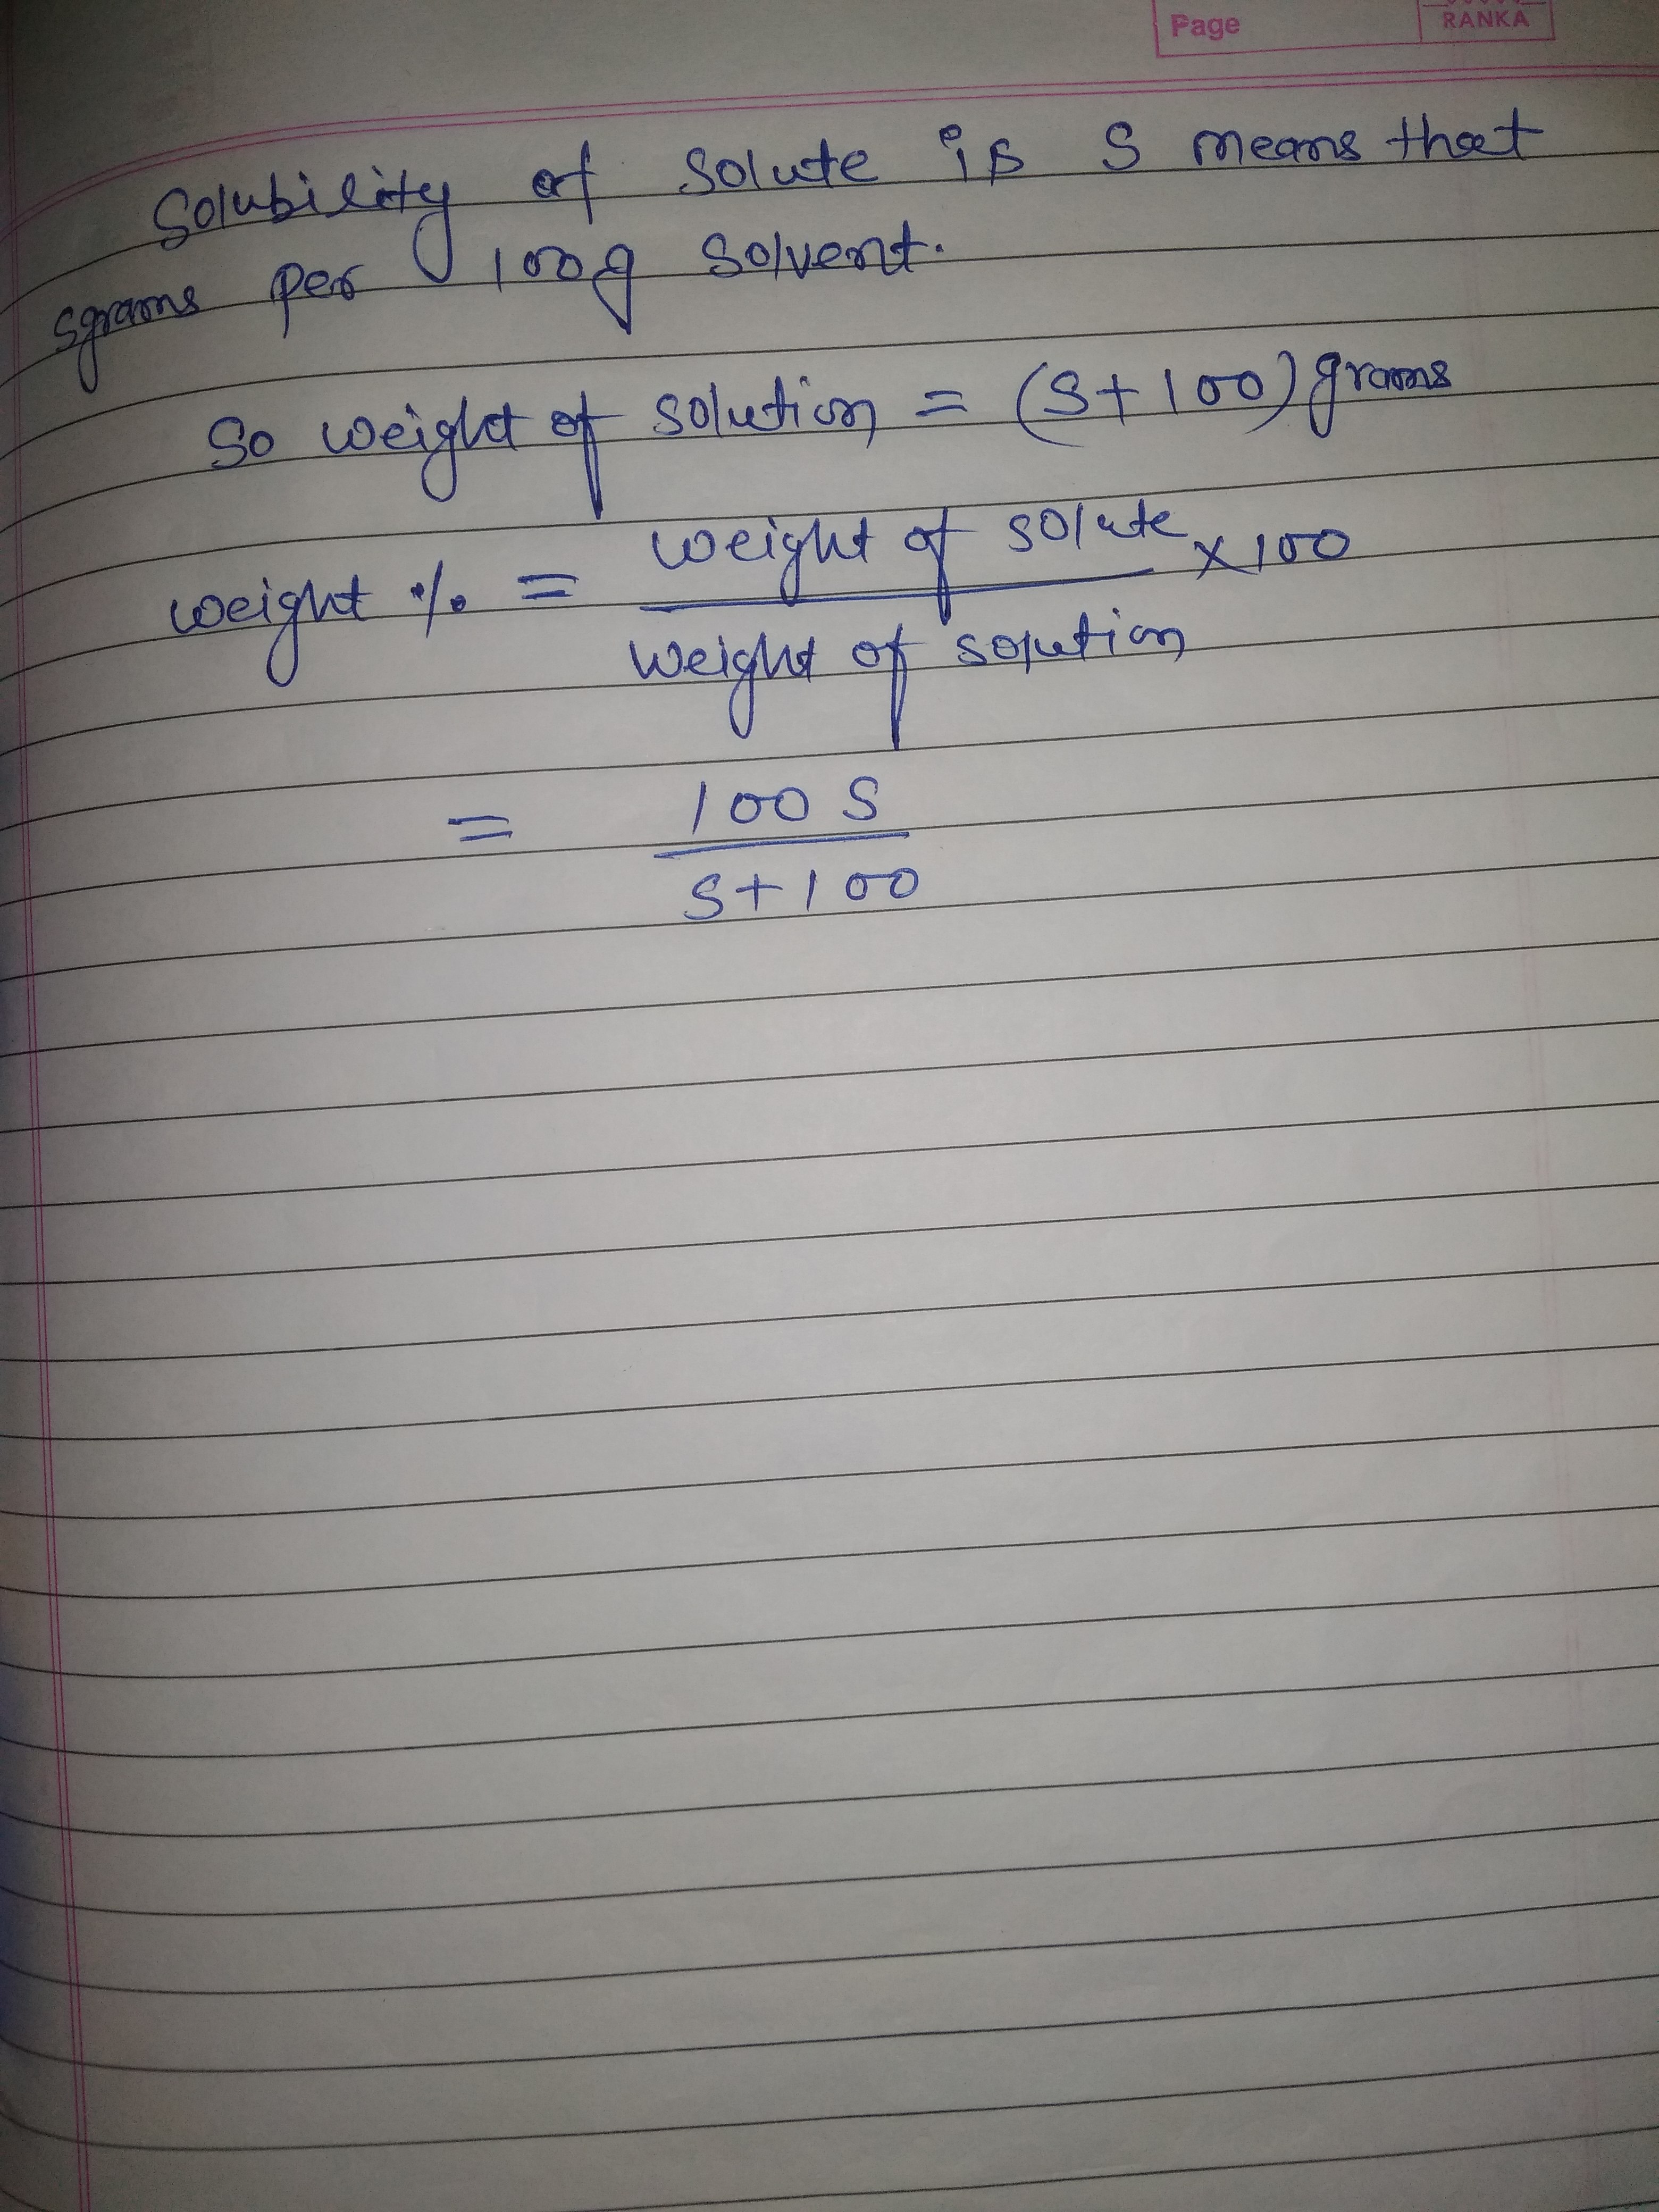 Page
RANKA
Solubility of solute is S means that
sgrams per 100g solvent.
So weight of solution = (S+100) grams
weight % = weight of solute × 100
weight of solution
= 100 S
S+100